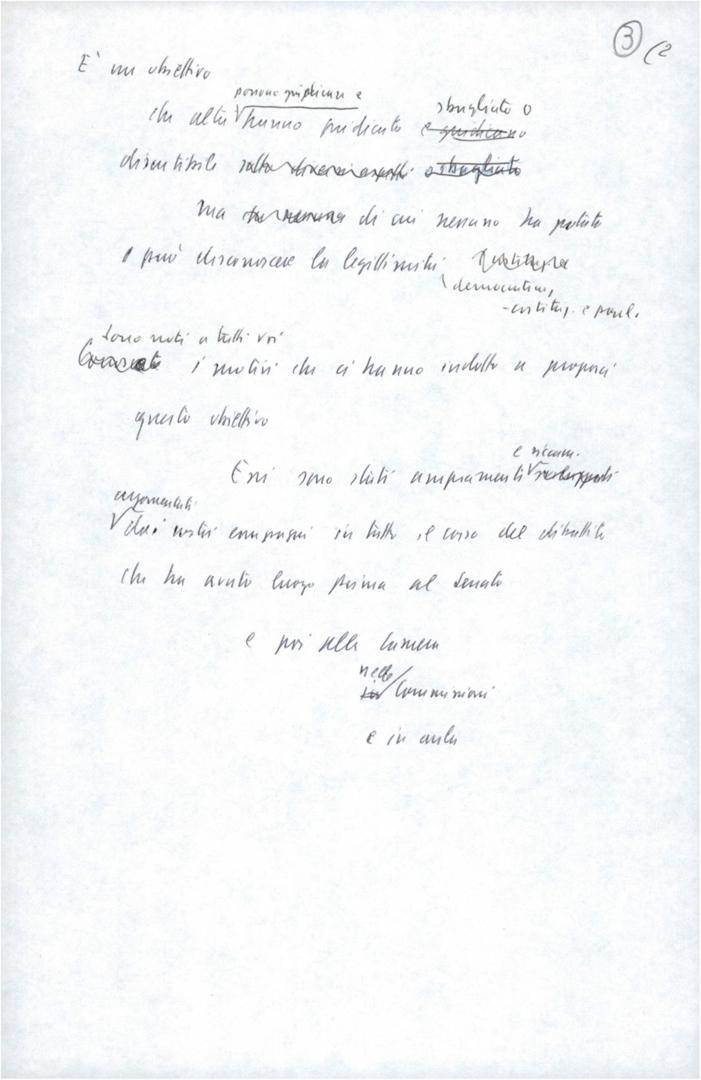 3 (2
È un obiettivo
possono giudicare e
sbagliato o
che altri hanno giudicato e giudicano
discutibile sotto diversi aspetti o sbagliato
ma di cui nessuno ha potuto
o può disconoscere la legittimità
democratica,
costituz. e parl.
Sono noti a tutti voi
i motivi che ci hanno indotto a proporci
questo obiettivo
e
Essi sono stati ampiamente sviluppati
argomentati
dai nostri compagni in tutto il corso del dibattito
che ha avuto luogo prima al Senato
e poi alla Camera
nelle
in Commissioni
e in aula